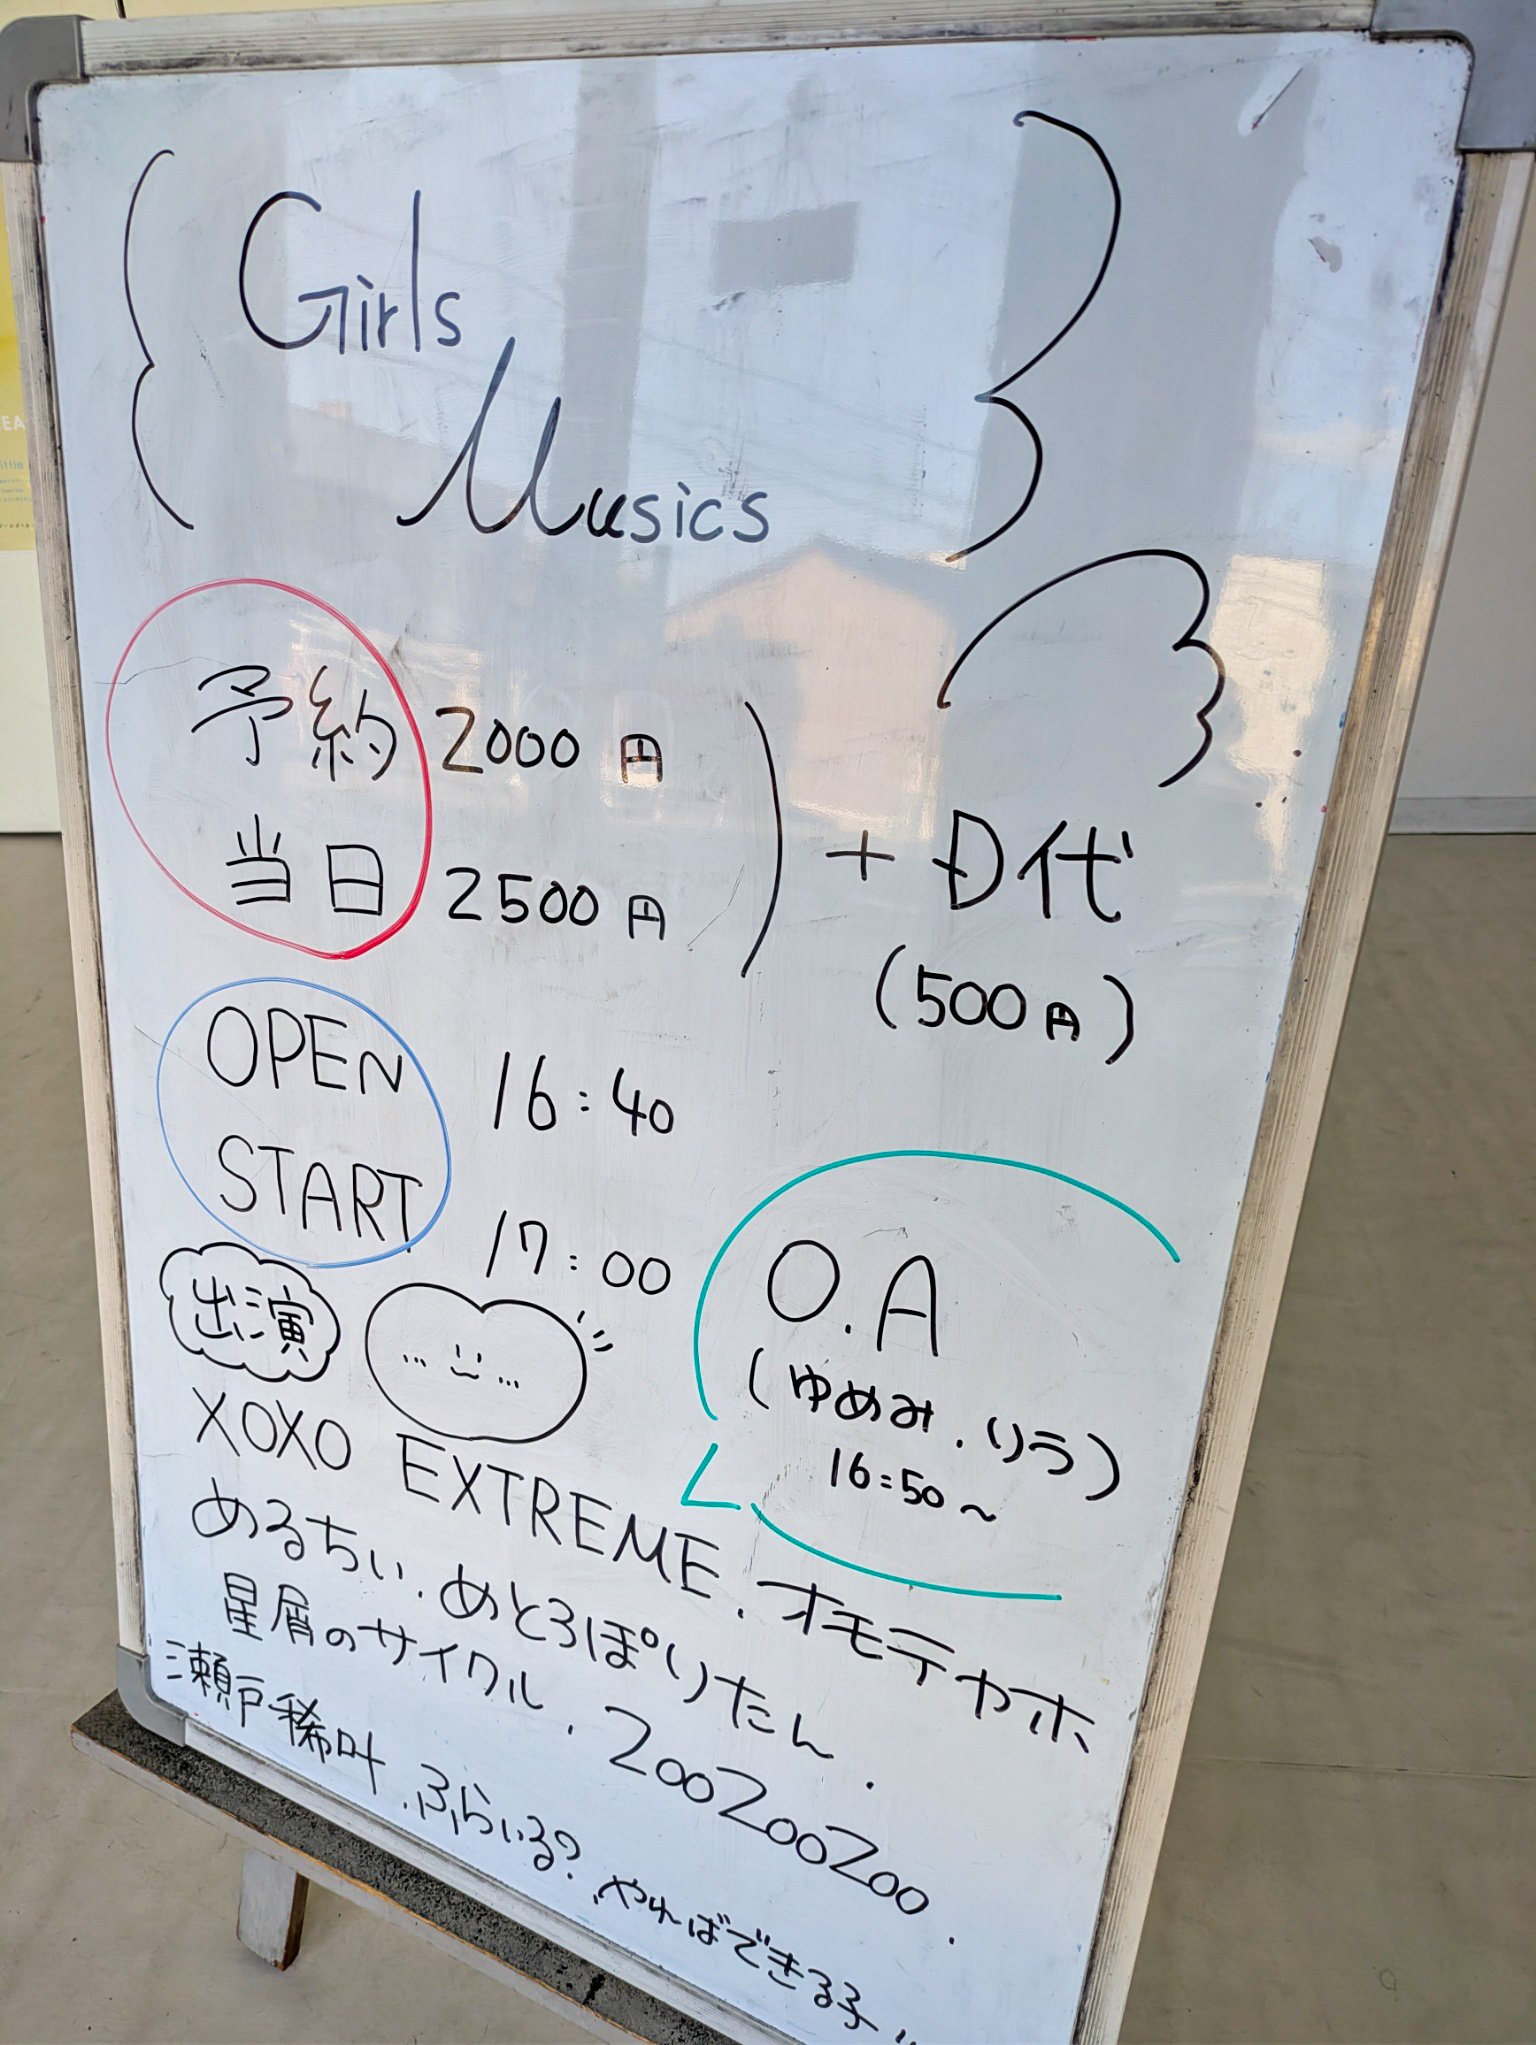 Girls
Musics
予約 2000円
当日 2500円
+ D代
(500円)
OPEN 16:40
START 17:00
O.A
(ゆめみ.りう)
16:50~
出演
XOXO EXTREME.オモテカホ
めるちぃ.めとろぽりたん.
星屑のサイクル.ZOOZOOZOO.
瀬戸稀叶.ふらいる?.やればできる子